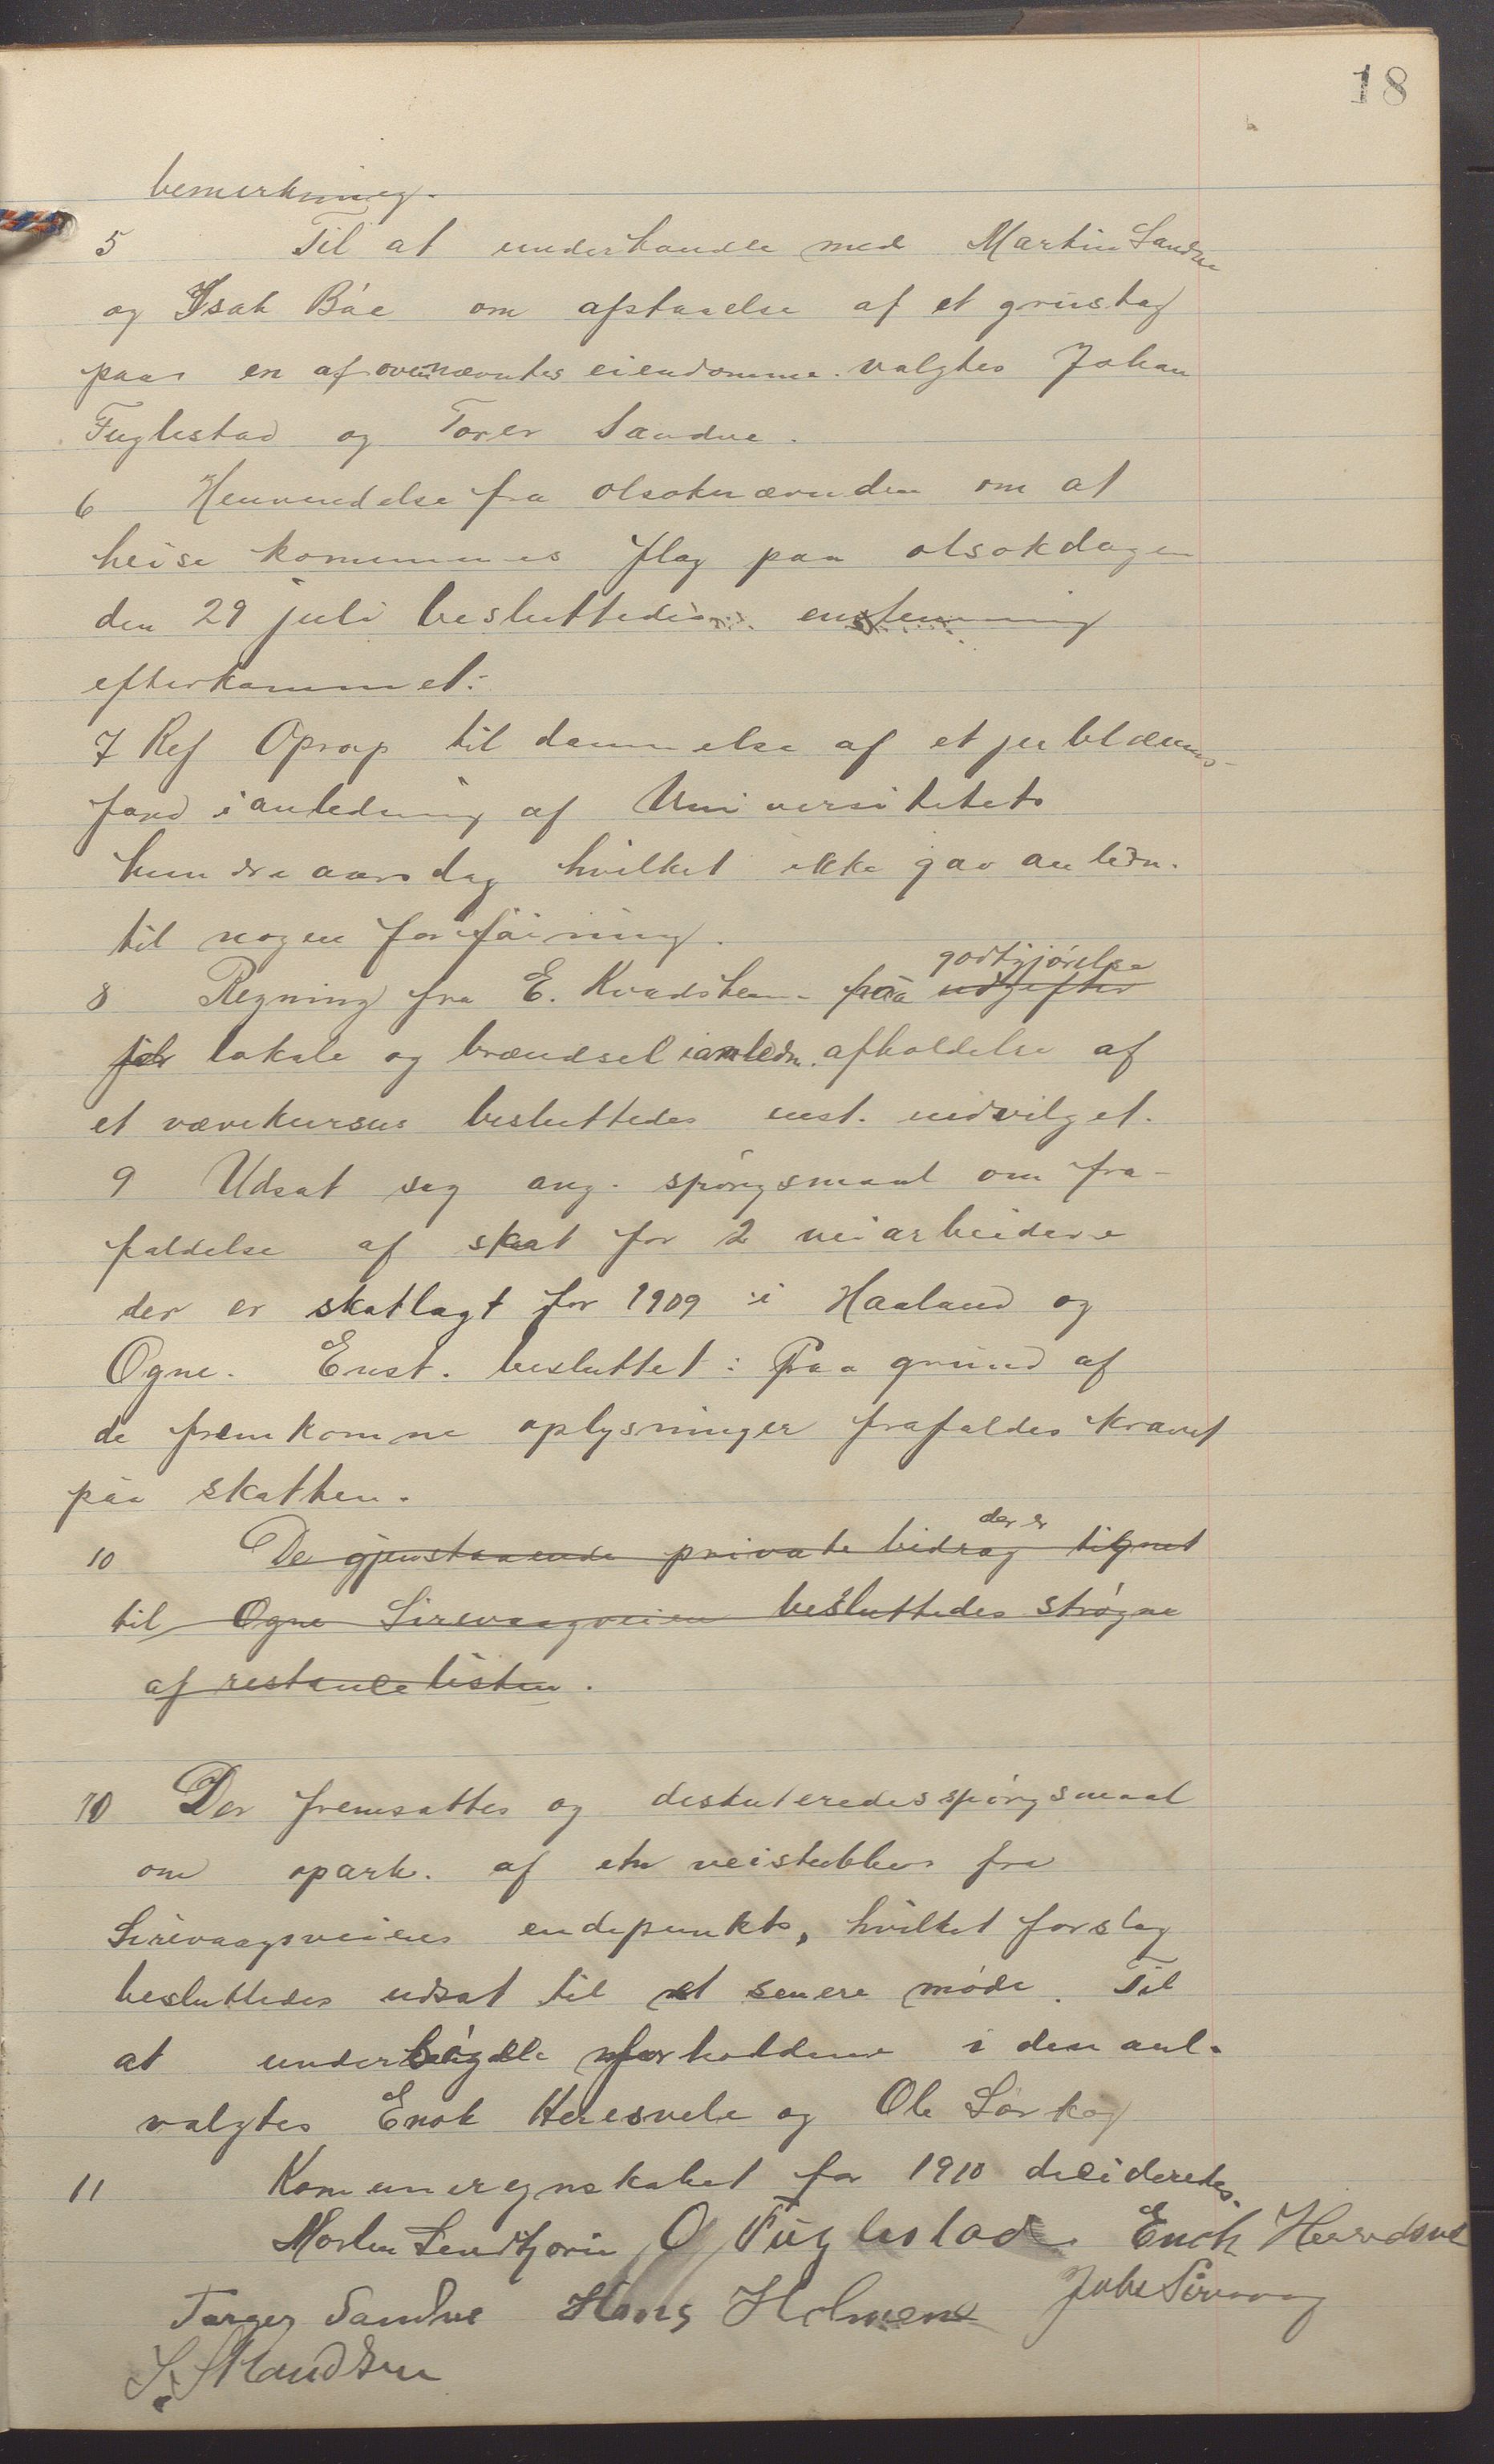 18
bemerkning.
5 Til at underhandle med Martin Sandve
og Isak Båe om afstaaelse af et grustag
paa en af ovennævntes eiendomme. valgtes Johan
Fuglestad og Torer Sandve.
6 Henvendelse fra olsoknævnden om at
heise kommunes flag paa olsokdagen
den 29 juli besluttedes enstemmig
efterkommet.
7 Ref Oprop til dannelse af et jubilæums-
fond i anledning af Universitetets
hundreaarsdag hvilket ikke gav anledn.
til nogen forføining.
8 Regning fra E. Kvadsheim paa udgifter godtgjørelse
for lokale og brændsel i anledn. afholdelse af
et vævekursus besluttedes enst. indvilget.
9 Udsat sag ang. spørgsmaal om fra-
faldelse af skat for 2 veiarbeidere
der er skatlagt for 1909 i Haaland og
Ogne. Enst. besluttet: Paa grund af
de fremkomne oplysninger frafaldes kravet
paa skatten.
10 De gjenstaaende private bidrag der er lignet
til Ogne Sirevaagveien besluttedes strøgne
af restancelisten.
10 Der fremsattes og deskuteredes spørgsmaal
om opark. af en veistubber fra
Sirevaagsveiens endepunkt, hvilket forslag
besluttedes udsat til et senere møde. Til
at undersøge forholdene i den anl.
valgtes Enok Heresvela og Ole Sørskog
11 Komuneregnskabet for 1910 desideretes.
Morten O Fuglestad Enok
Torger Sandve Hans Holmene